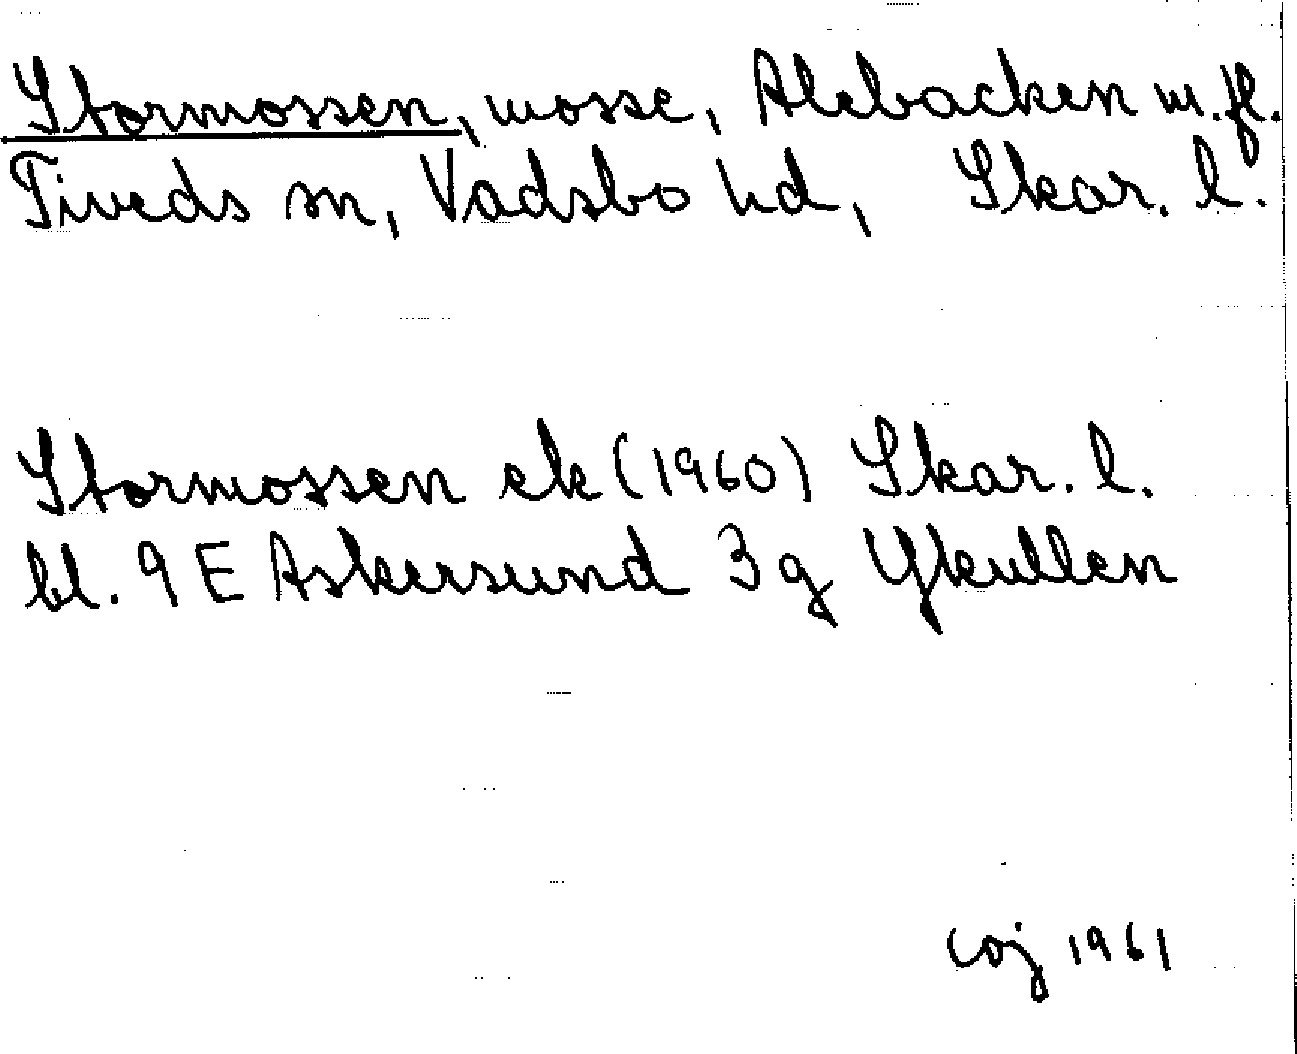 Stormossen, mosse, Alebacken m.fl.
Tiveds sn, Vadsbo hd, Skar. l.
Stormossen ek (1960) Skar. l.
bl. 9 E Askersund 3 g Ykullen
coj 1961